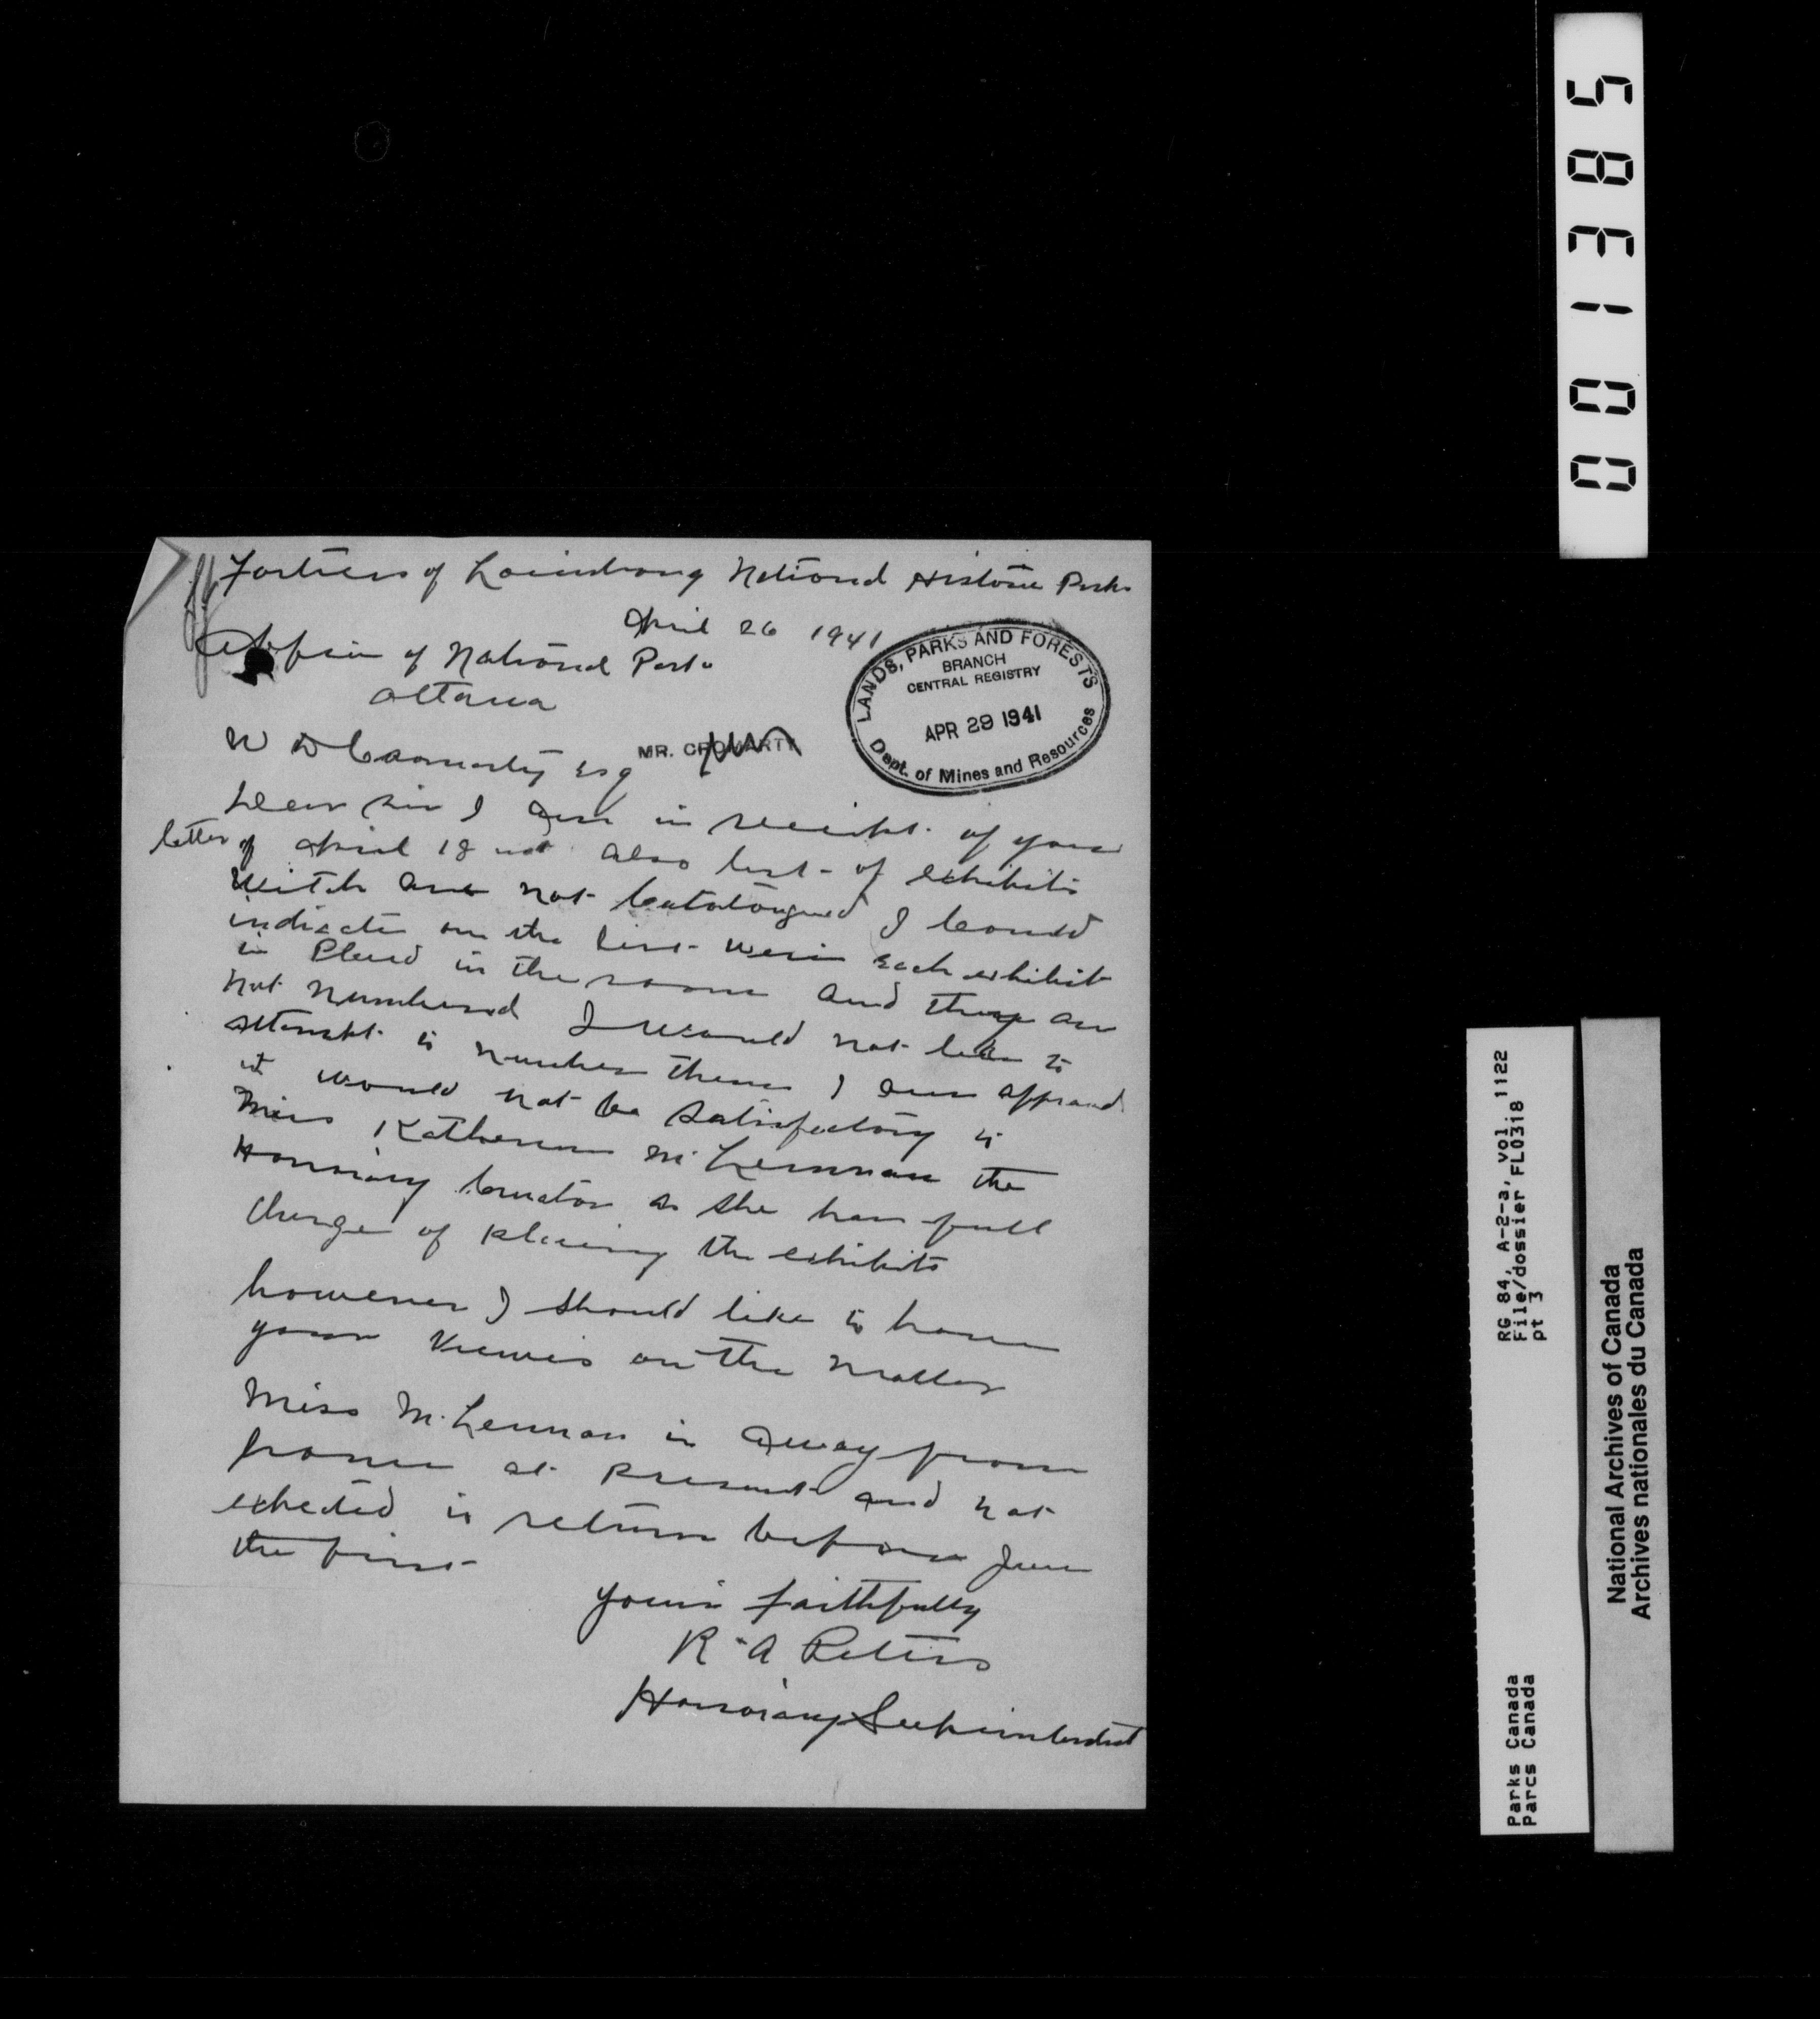 Fortress of Louisbourg National Historic Park
April 26 1941
of National Parks
Ottawa
LANDS, PARKS AND FORESTS
BRANCH
CENTRAL REGISTRY
APR 29 1941
Dept. of Mines and Resources
W D Cromarty Esq
MR. CROMARTY
Dear Sir I am in receipt of your
letter of April 18 also list of exhibits
witch are not catalougued I could
indicate on the list were each exhibit
is placed in the room and they are
not numbered I would not like to
attempt to number them I am affraid
it would not be satisfactory to
Miss Katherine McLennan the
Honorary Curator as she has full
charge of placing the exhibits
however I should like to have
your views on the matter
Miss McLennan is away from
home at present and not
expected to return before June
the first
Yours faithfully
R A Peters
Honorary Superintendent
00 1385
RG 84, A-2-a, vol. 1122
File/dossier FL0318
pt 3
Parks Canada
Parcs Canada
National Archives of Canada
Archives nationales du Canada